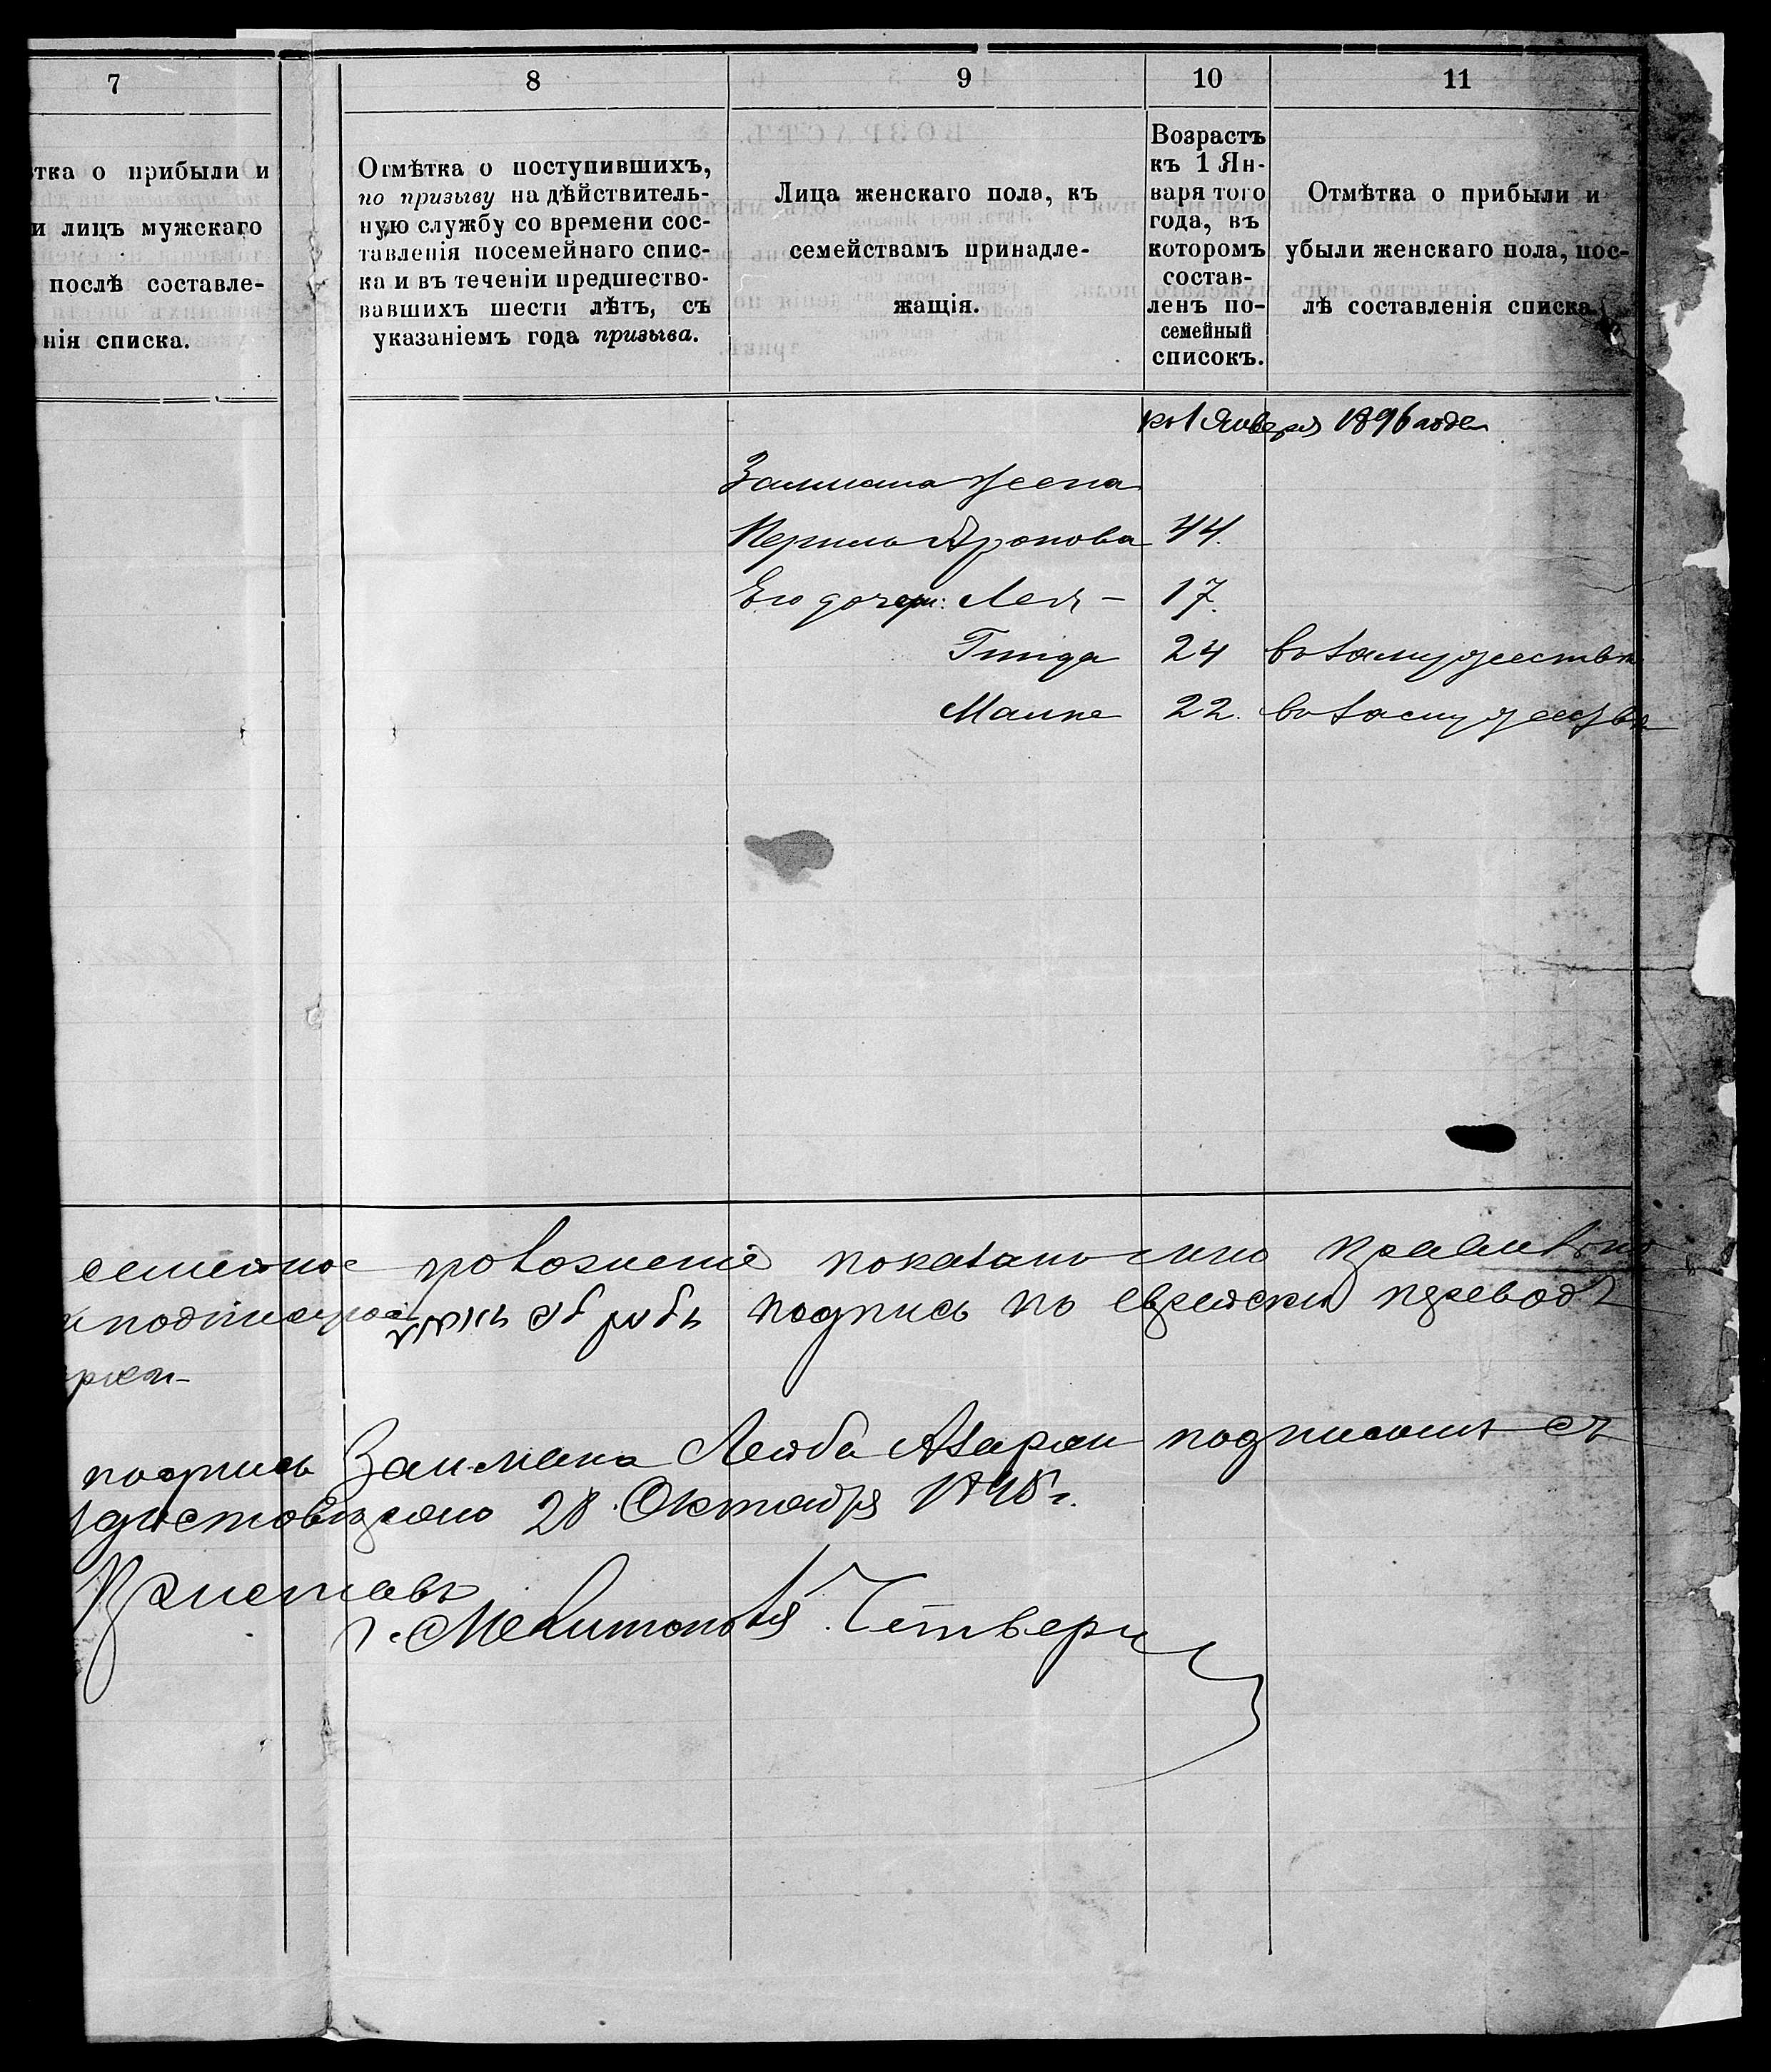 7
8
9
10
11
тка о прибыли и
и лицъ мужскаго
послѣ составле-
нія списка.
Отмѣтка о поступившихъ,
по призыву на дѣйствитель-
ную службу со времени сос-
тавленія посемейнаго спис-
ка и въ теченіи предшество-
вавшихъ шести лѣтъ, съ
указаніемъ года призыва.
Лица женскаго пола, къ
семействамъ принадле-
жащія.
Возрастъ
къ 1 Ян-
варя того
года, въ
которомъ
состав-
ленъ по-
семейный
списокъ.
Отмѣтка о прибыли и
убыли женскаго пола, пос-
лѣ составленія списка.
къ 1 Января 1896 года
Залмана жена
Перль Аронова 44.
Его дочери: Лея - 17.
Гинда 24 въ замужествѣ
Малке 22. въ замужествѣ
семейное положеніе показано мною правильно
подпись по еврейски переводъ
подпись Залмана Лейба Азархи подписалъ съ
28 Октября
Приставъ
г. Мелитополя